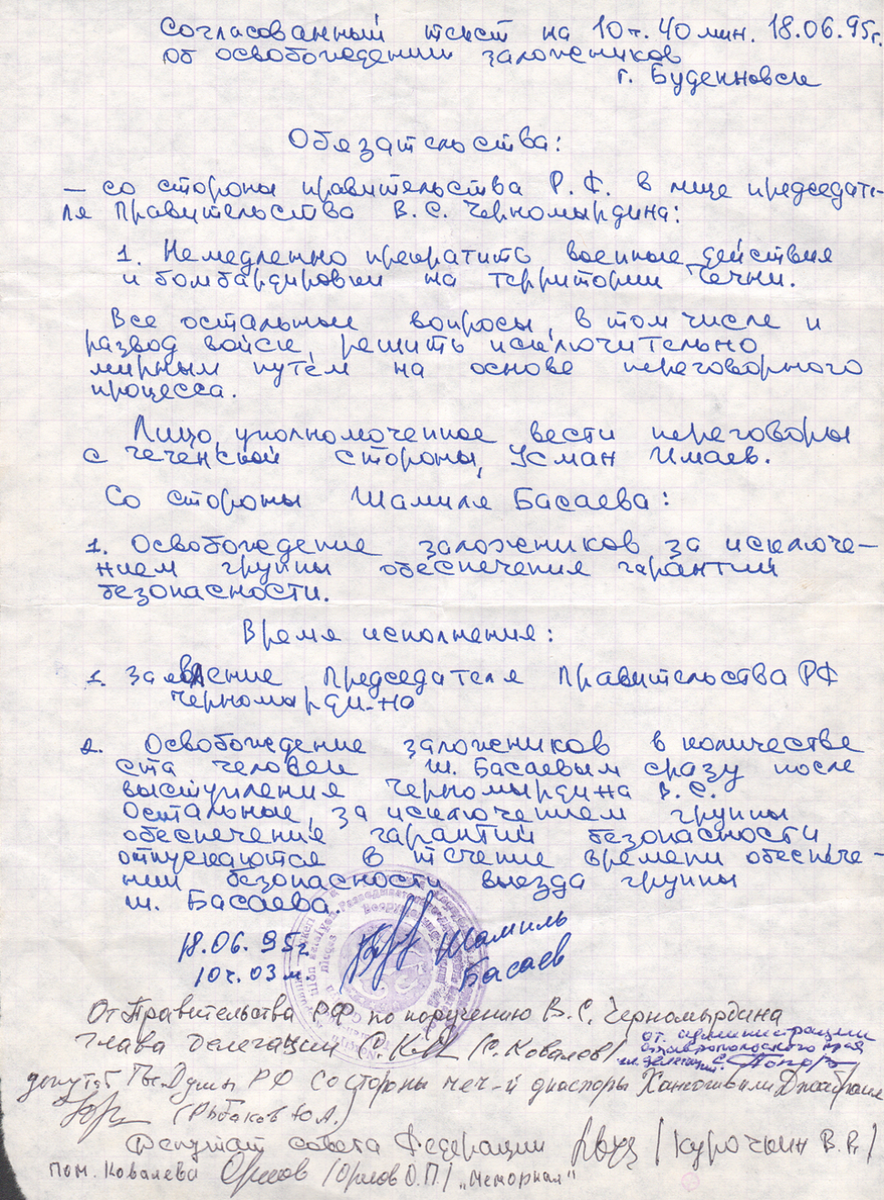 Согласованный текст на 10ч. 40 мин. 18.06.95г.
об освобождении заложников
г. Буденновск
Обязательства:
— со стороны правительства Р.Ф. в лице председате-
ля Правительства В.С. Черномырдина:
1. Немедленно прекратить военные действия
и бомбардировки на территории Чечни.
Все остальные вопросы, в том числе и
развод войск, решить исключительно
мирным путём на основе переговорного
процесса.
Лицо, уполномоченное вести переговоры
с чеченской стороны, Усман Имаев.
Со стороны Шамиля Басаева:
1. Освобождение заложников за исключе-
нием группы обеспечения гарантий
безопасности.
Время исполнения:
1. Заявление Председателя Правительства РФ
Черномырди-на
2. Освобождение заложников в количестве
ста человек Ш. Басаевым сразу после
выступления Черномырдина В.С.
Остальные, за исключением группы
обеспечение гарантий безопасности
отпускаются в течение времени обеспече-
нии безопасности выезда группы
Ш. Басаева.
18.06.95г. Шамиль
10ч.03м. Басаев
От Правительства РФ по поручению В.С. Черномырдина
Глава делегации /С. Ковалев/
от администрации
Ставропольского края
депутат Гос.Думы РФ со стороны чеч-й диаспоры
(Рыбаков Ю.А.)
Депутат совета Федерации /Курочкин В.В./
Пом. Ковалева Орлов /Орлов О.П./ „Мемориал"